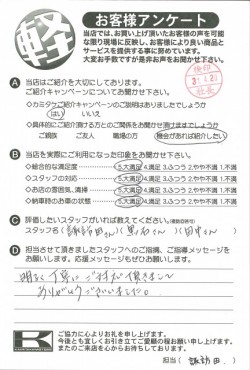 軽
お客様アンケート
当店では、お買い上げ頂いたお客様の声を可能
な限り現場に反映し、お客様により良い商品と
サービスを提供する事に努めています。
大変お手数ですが是非お声をお聞かせ下さい。
31.2.21
社長
A 当店はご紹介を大切にしております。
ご紹介キャンペーンについてお聞かせ下さい。
◇カミタケご紹介キャンペーンのご説明はありましたでしょうか
はい いいえ
◇具体的にご紹介頂ける方とのご関係をお聞かせ頂けますでしょうか
ご親族 ご友人 職場の方 機会があれば紹介したい
B 当店を実際にご利用になった印象をお聞かせ下さい。
◇総合的な満足度 5.大満足 4.満足 3.ふつう 2.やや不満 1.不満
◇スタッフの対応 5.大満足 4.満足 3.ふつう 2.やや不満 1.不満
◇お店の雰囲気、清掃 5.大満足 4.満足 3.ふつう 2.やや不満 1.不満
◇納車時のお車の状態 5.大満足 4.満足 3.ふつう 2.やや不満 1.不満
C 評価したいスタッフがいれば教えてください。(複数回答可)
スタッフ名 (諏訪田さん) (黒石さん) (田中さん)
D 担当させて頂きましたスタッフへのご指摘、ご指導メッセージを
お願いします。応援メッセージもぜひお願いします。
明るく丁寧にご対応頂きまして
ありがとうございました。
K
ご協力に心よりお礼を申し上げます。
今後とも宜しくお引き立てご愛顧の程お願い申し上げます。
またのご来店を心からお待ちしております。
担当 (諏訪田)